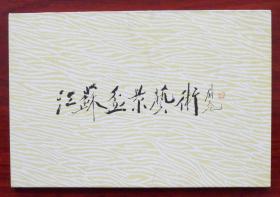 江苏盆景藝術